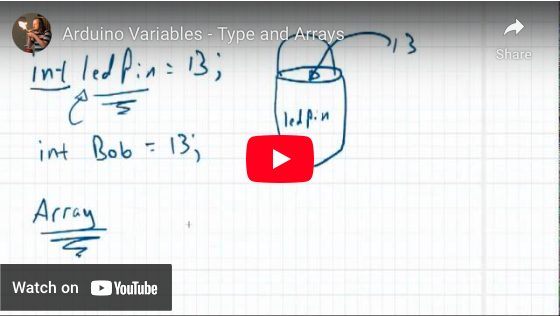 Arduino Variables - Type and Arrays
Share
int ledPin = 13;
13
ledpin
int Bob = 13;
Array
Watch on YouTube